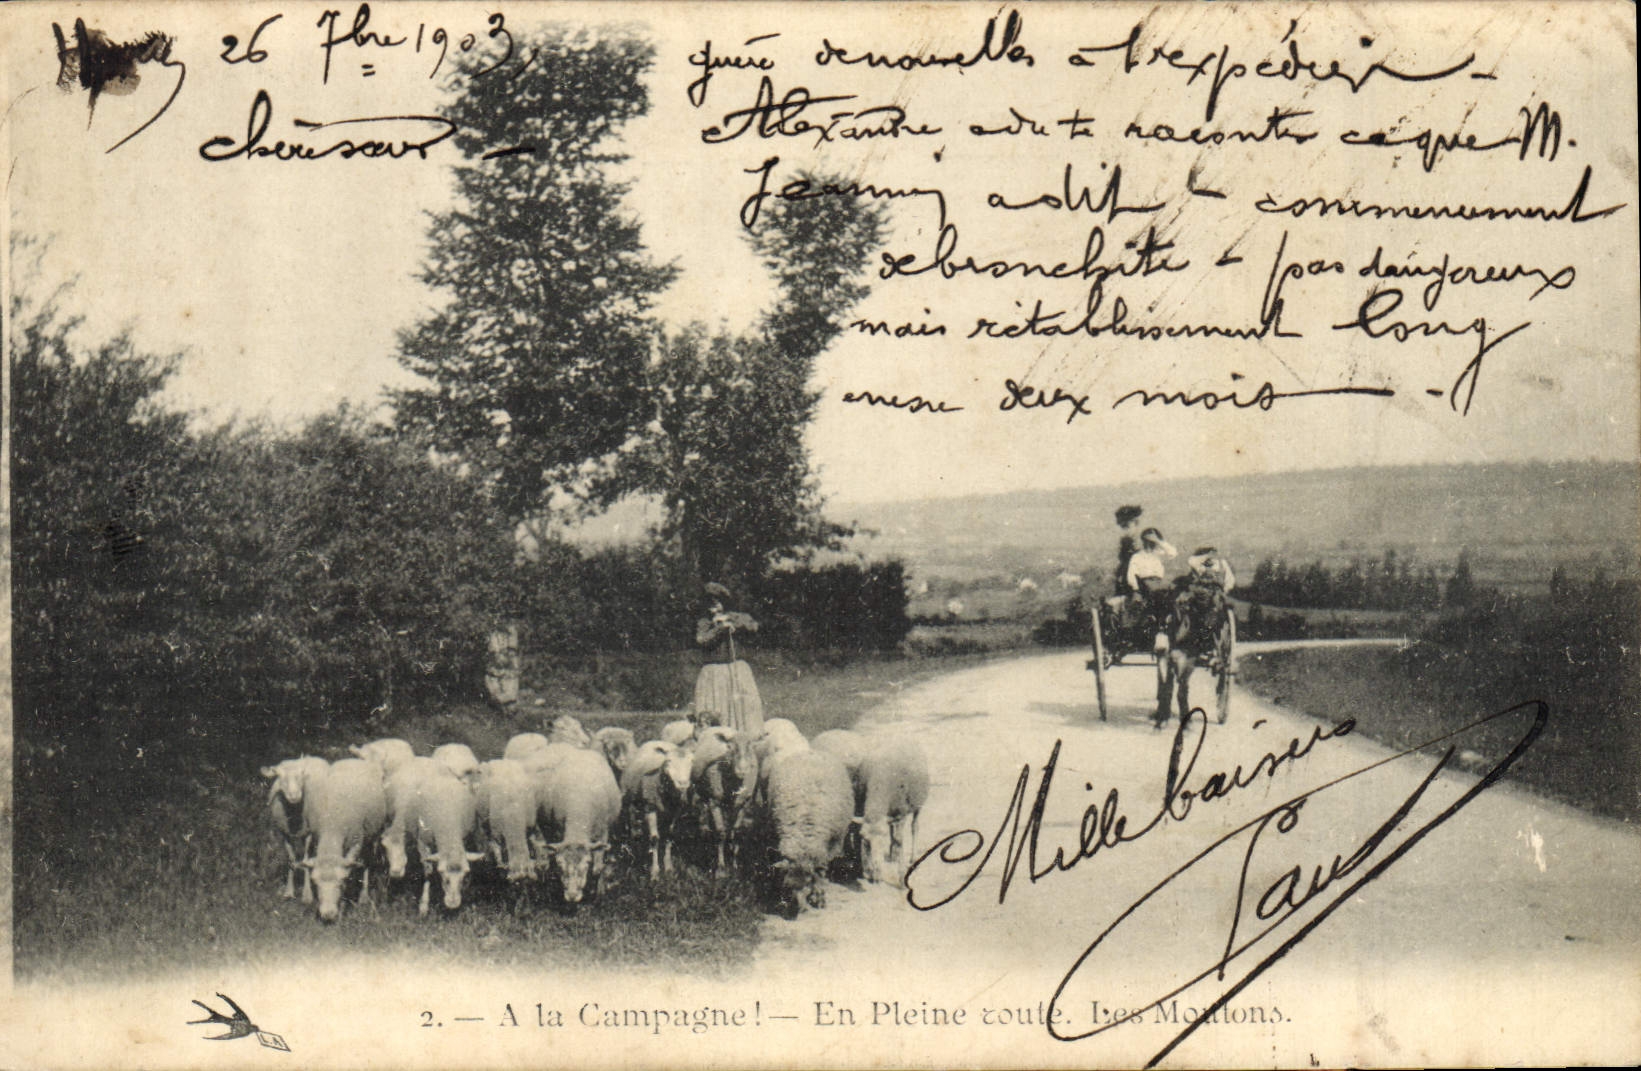 26 7bre 1903,
chère sœur —
guère de nouvelles à t'expédier -
Alexandre a du te raconter ce que M.
Jeannin a dit - commencement
de bronchite - pas dangereux
mais rétablissement long
deux mois -
Mille baisers
Paul
2. — A la Campagne! — En Pleine route. Les Moutons.
L.A.